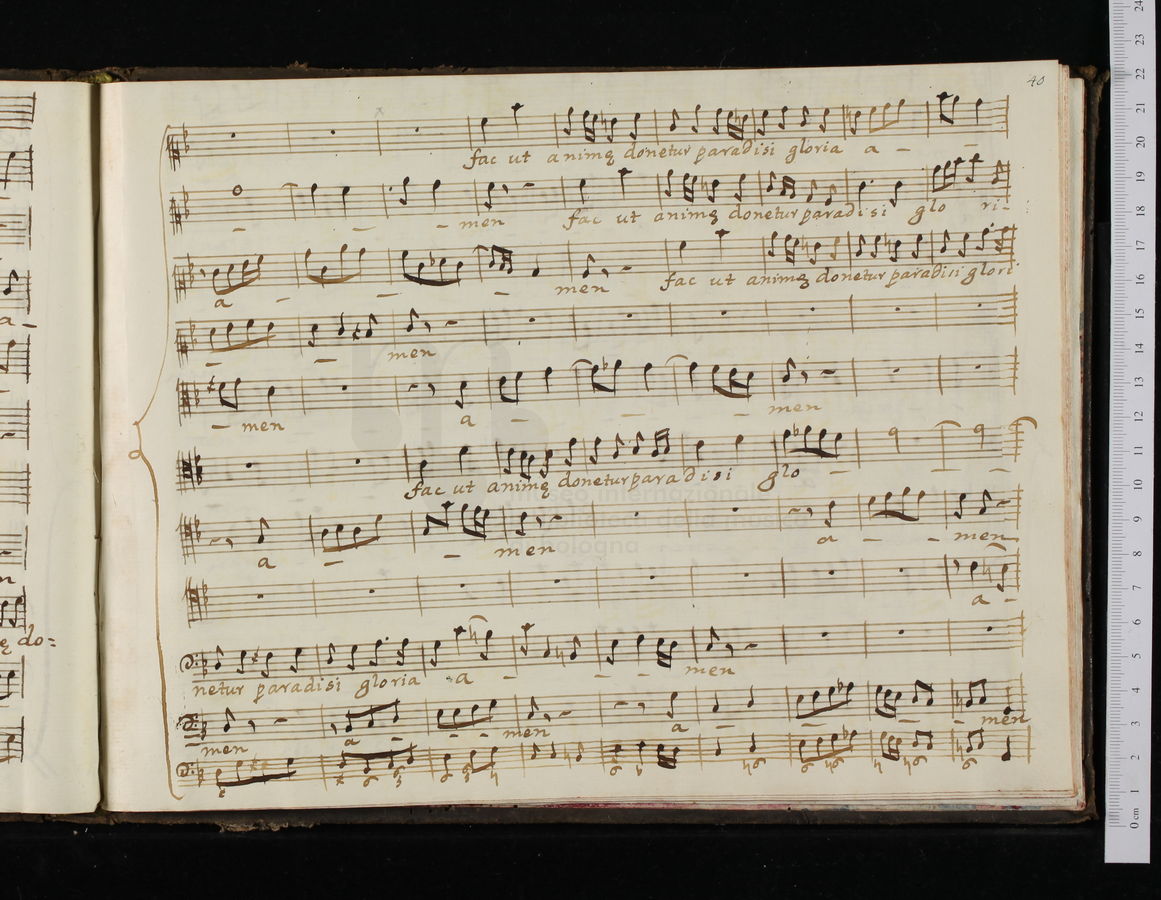 40
fac ut animę donetur paradisi gloria a - -
- - - men fac ut animę donetur paradisi glo ri-
a - - - - men fac ut animę donetur paradisi glori
- - men
- men a - - - men
fac ut animę donetur paradisi glo -
a - - men a - - men
a -
netur paradisi gloria a - - - - men
men a - - - men a - - - - men
a -
n
ę do=
museo internazionale
bologna